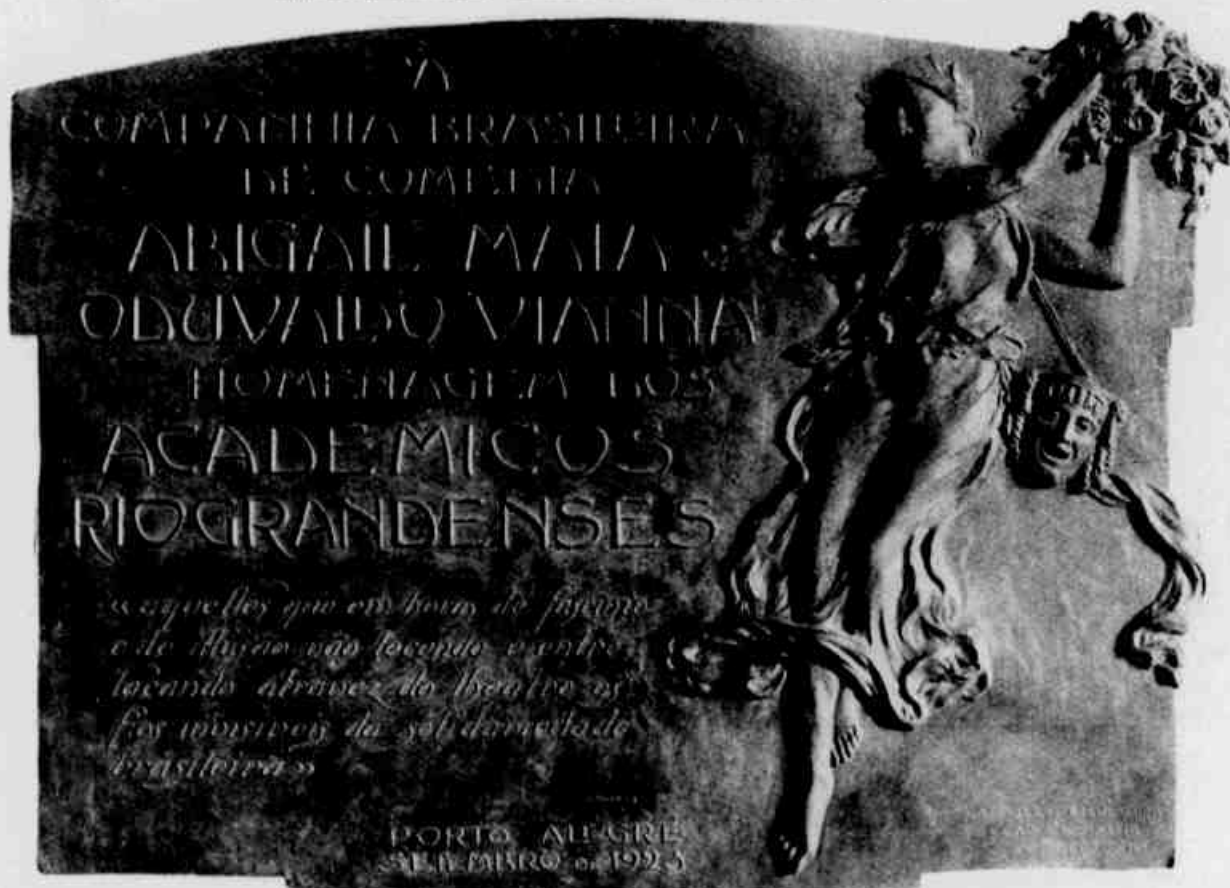 Á
COMPANHIA BRASILEIRA
DE COMEDIA
ABIGAIL MAIA
ODUVALDO VIANNA
HOMENAGEM DOS
ACADEMICOS
RIOGRANDENSES
«aquelles que em horas de fascino
e de illusão vão tecendo e entre
laçando atravez do theatro os
fios invisiveis da solidariedade
brasileira»
PORTO ALEGRE
SETEMBRO DE 1923